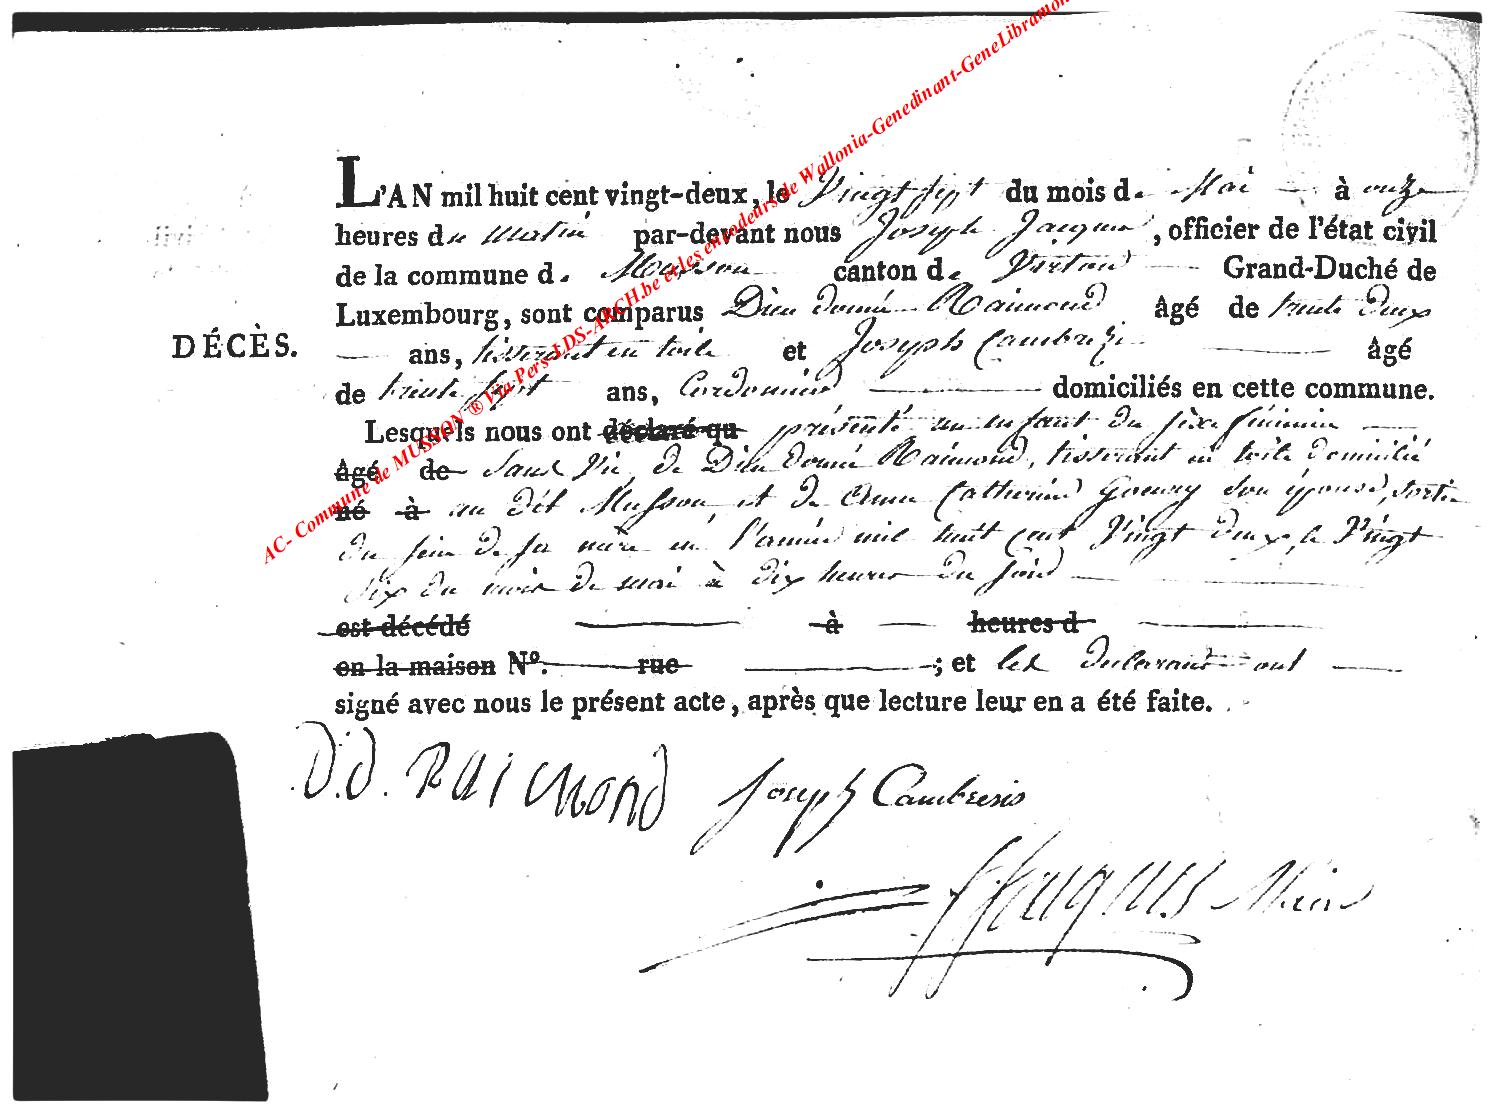 L'AN mil huit cent vingt-deux, le Vingt sept du mois de Mai à onze
heures du matin par-devant nous Joseph Jacques, officier de l'état civil
de la commune de Musson canton de Virton Grand-Duché de
Luxembourg, sont comparus Dieu donné Raimond âgé de trente deux
DÉCÈS.
ans, tisserant en toile et Joseph Cambrezi âgé
de trente sept ans, Cordonnier domiciliés en cette commune.
Lesquels nous ont déclaré qu présenté un enfant du sixe féminin
âgé de Sans Vie, de Dieu donné Raimond, tisserant en toile domicilié
né à au dit Musson, et de Anne Catherine Goeury son épouse, sortie
du sein de sa mère en l'année mil huit cent Vingt deux, le Vingt
six du mois de mai à dix heures du soir
est décédé à heures d
en la maison Nº. rue ; et les déclarants ont
signé avec nous le présent acte, après que lecture leur en a été faite.
D.d. RAIMOND Joseph Cambresis
JJacques Maire
AC- Commune de MUSSON ® Via Pers-LDS-ARCH.be et les encodeurs de Wallonia-Genedinant-GeneLibramon